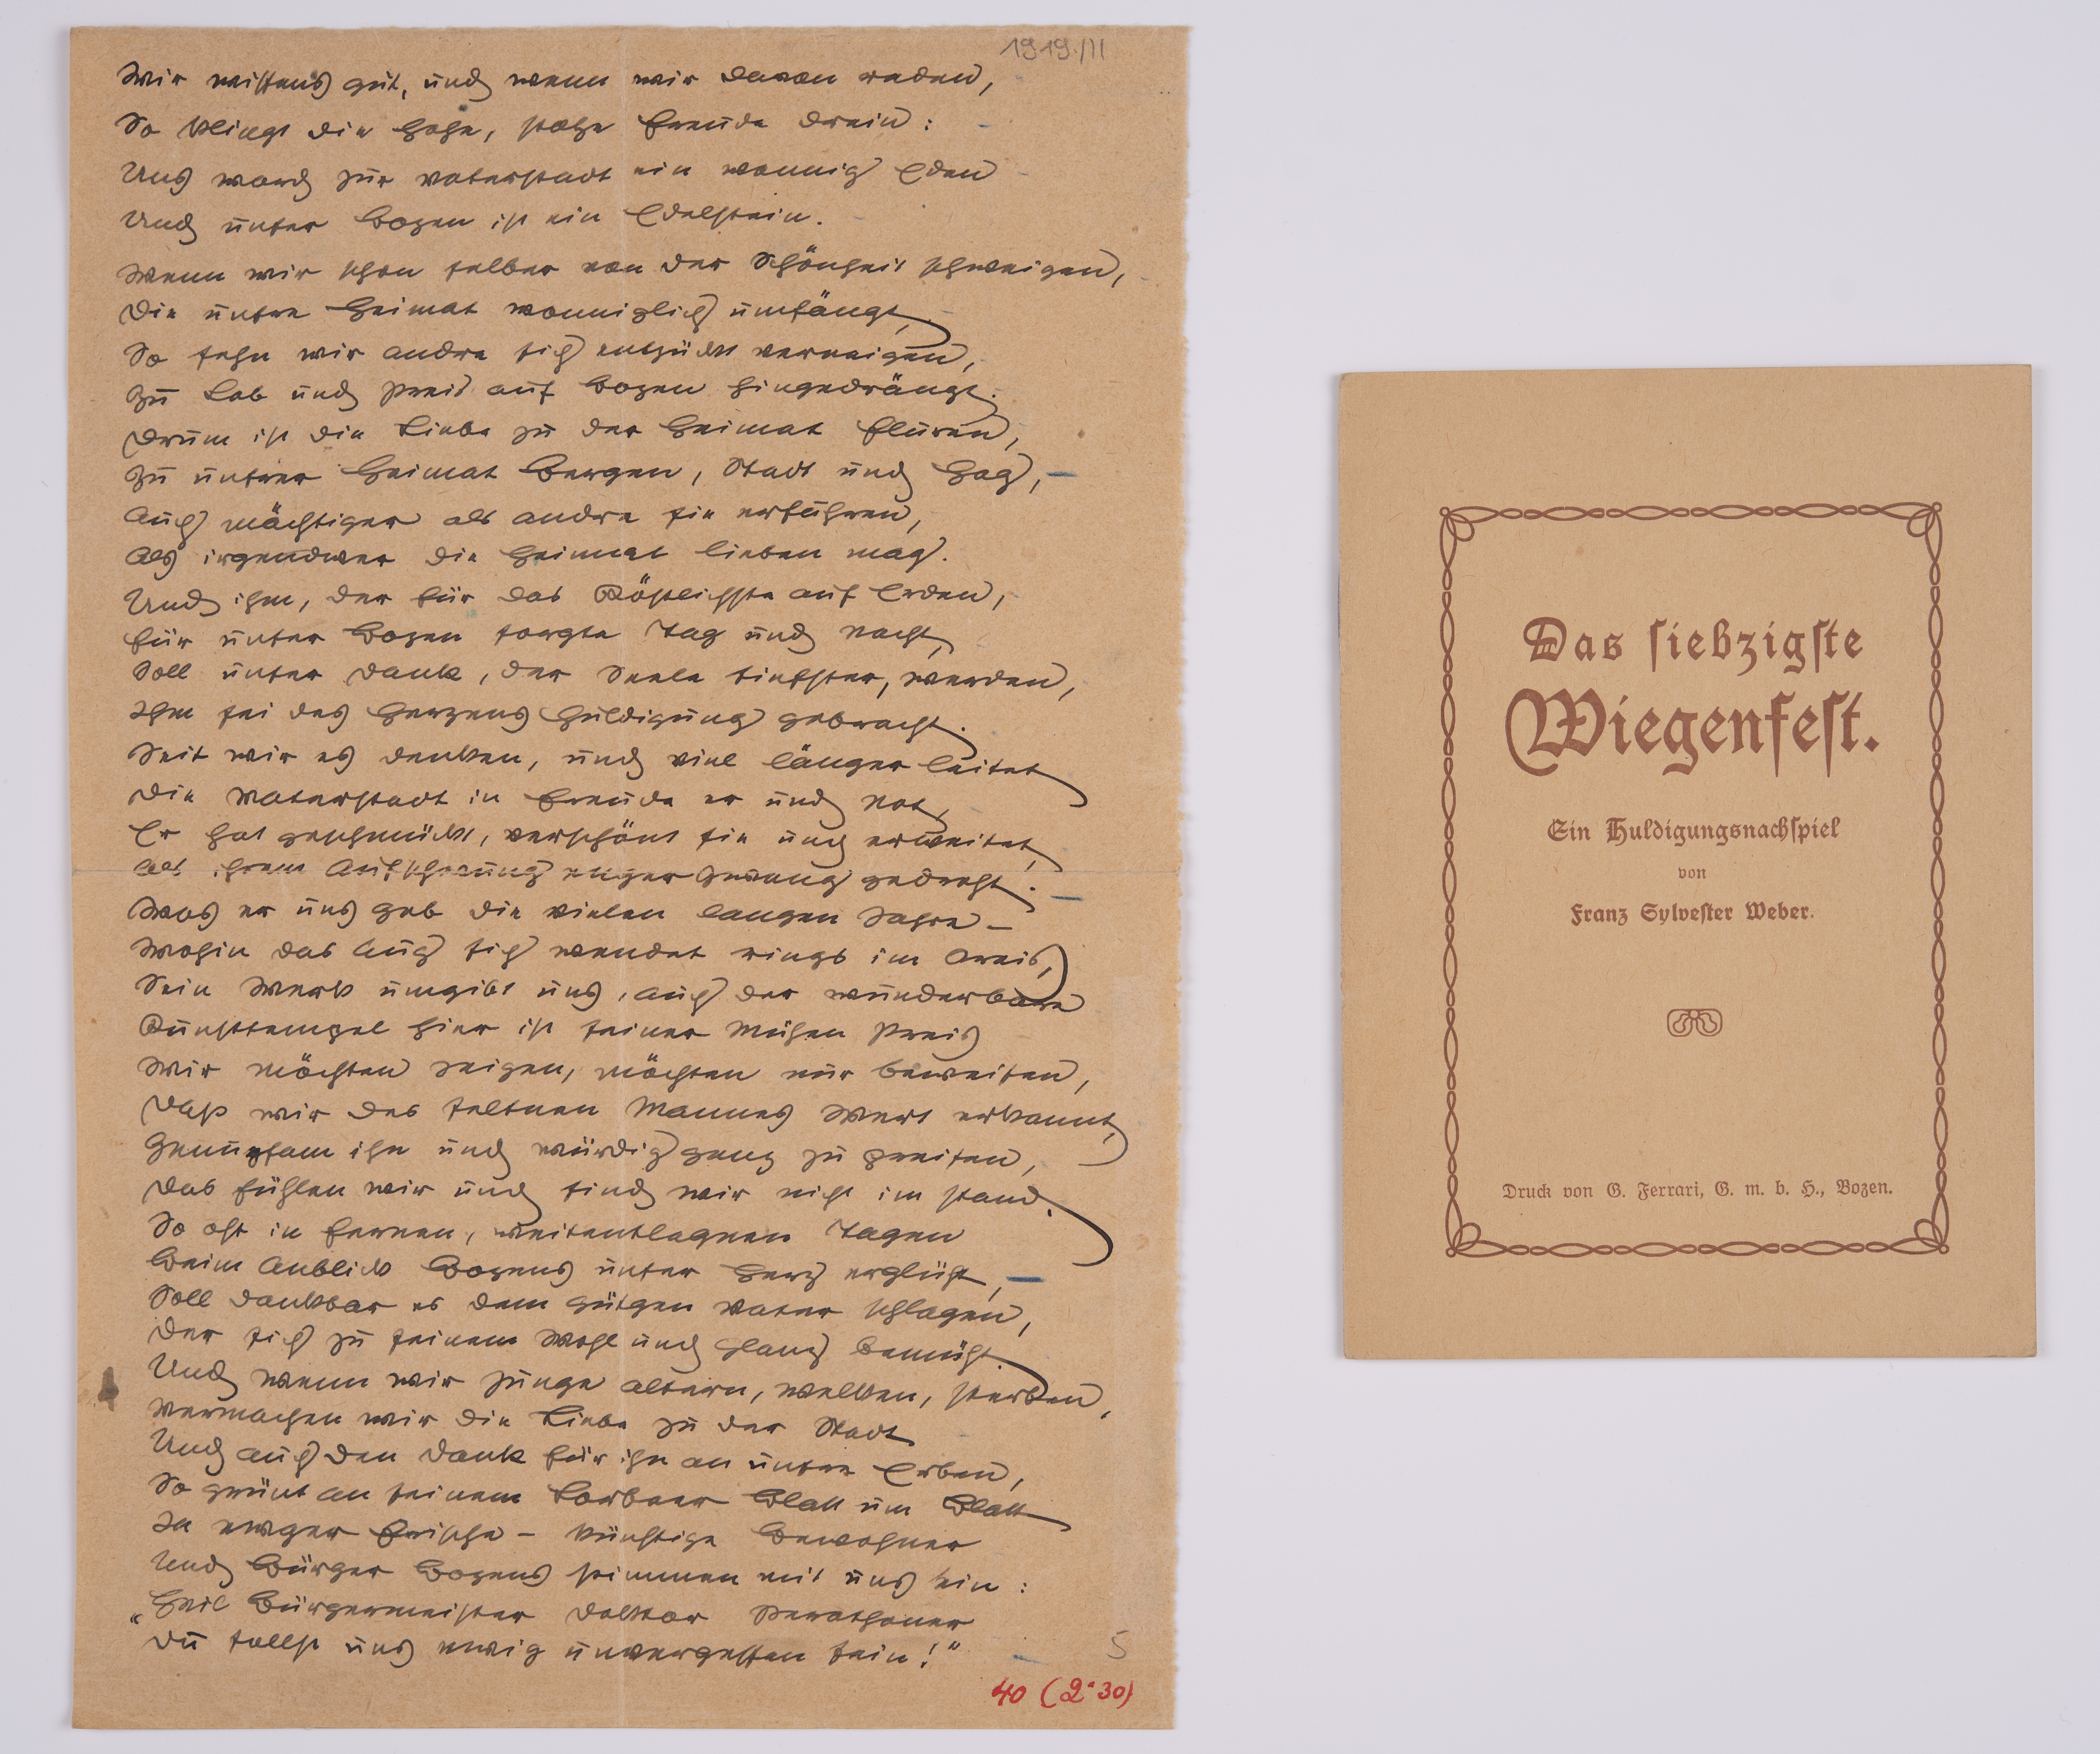 1919/II
Wir wissens gut, und wenn wir davon reden,
So klingt die hohe, stolze Freude drein:
Uns ward zur Vaterstadt ein wonnig Eden
Und unser Bozen ist ein Edelstein.
Wenn wir schon selber von der Schönheit schweigen,
Die unsre Heimat wonniglich umfängt,
So sehn wir andre sich entzückt verneigen,
Zu Lob und Preis auf Bozen hingedrängt.
Drum ist die Liebe zu der Heimat Fluren,
Zu unsrer Heimat Bergen, Stadt und Hag,
Auch mächtiger als andre sie erfuhren,
Als irgendwer die Heimat lieben mag.
Und ihm, der für das Köstlichste auf Erden,
Für unser Bozen sorgte Tag und Nacht,
Soll unser Dank, der Seele tiefster, werden,
Ihm sei des Herzens Huldigung gebracht.
Seit wir es denken, und viel länger leitet
Die Vaterstadt in Freude er und Not,
Er hat geschmückt, verschönt sie und erweitet,
Als ihrem Aufschwung enger Zwang gedroht.
Was er uns gab die vielen langen Jahre –
Wohin das Aug sich wendet rings im Kreis,
Sein Werk umgibt uns, auch der wunderbare
Kunsttempel hier ist seiner Mühen Preis
Wir möchten zeigen, möchten nur beweisen,
Daß wir des seltnen Mannes Wert erkannt,
Genugsam ihn und würdig ganz zu preisen,
Das fühlen wir und sind wir nicht im stand.
So oft in fernen, weitentlegnen Tagen
Beim Anblick Bozens unser Herz erglüht,
Soll dankbar es dem gütgen Vater schlagen,
Der sich zu seinem Wohl und Glanz bemüht.
Und wenn wir Junge altern, welken, sterben,
Vermachen wir die Liebe zu der Stadt
Und auch den Dank für ihn an unsre Erben,
So grünt an seinem Lorbeer Blatt um Blatt
In ewger Frische – künftige Bewohner
Und Bürger Bozens stimmen mit uns ein:
„Heil Bürgermeister Doktor Perathoner
Du sollst uns ewig unvergessen sein!"
5
40 (2·30)
Das siebzigste
Wiegenfest.
Ein Huldigungsnachspiel
von
Franz Sylvester Weber.
Druck von G. Ferrari, G. m. b. H., Bozen.